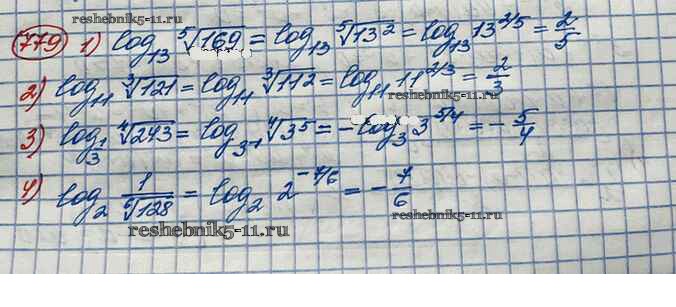 reshebnik5-11.ru
779 1) log₁₃ ⁵√169 = log₁₃ ⁵√13² = log₁₃ 13^2/5 = 2/5
reshebnik5-11.ru
2) log₁₁ ³√121 = log₁₁ ³√11² = log₁₁ 11^2/3 = 2/3
3) log_1/3 ⁴√243 = log_3⁻¹ ⁴√3⁵ = -log₃ 3^5/4 = -5/4
4) log₂ 1/⁶√128 = log₂ 2^-7/6 = -7/6
reshebnik5-11.ru
reshebnik5-11.ru